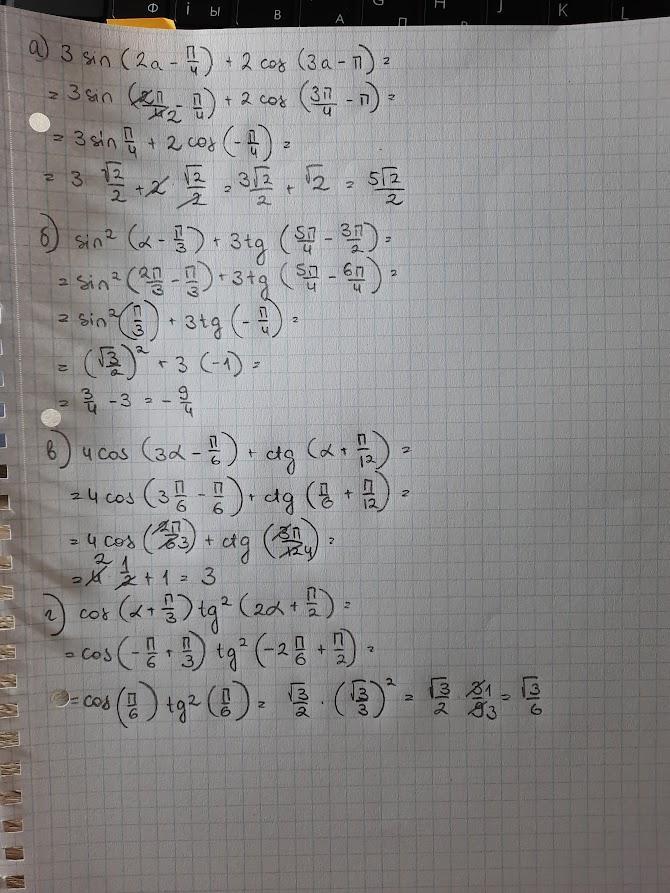 Ф і Ы В А П H J K L
а) 3 sin (2a - π/4) + 2 cos (3a - π) =
= 3 sin (2π/4 2 - π/4) + 2 cos (3π/4 - π) =
= 3 sin π/4 + 2 cos (-π/4) =
= 3 √2/2 + 2 · √2/2 = 3√2/2 + √2 = 5√2/2
б) sin² (α - π/3) + 3 tg (5π/4 - 3π/2) =
= sin² (2π/3 - π/3) + 3 tg (5π/4 - 6π/4) =
= sin² (π/3) + 3 tg (-π/4) =
= (√3/2)² + 3 (-1) =
= 3/4 - 3 = - 9/4
в) 4 cos (3α - π/6) + ctg (α + π/12) =
= 4 cos (3 π/6 - π/6) + ctg (π/6 + π/12) =
= 4 cos (2π/6 3) + ctg (3π/12 4) =
= 4 2 1/2 + 1 = 3
г) cos (α + π/3) tg² (2α + π/2) =
= cos (-π/6 + π/3) tg² (-2 π/6 + π/2) =
= cos (π/6) tg² (π/6) = √3/2 · (√3/3)² = √3/2 · 3 1/9 3 = √3/6